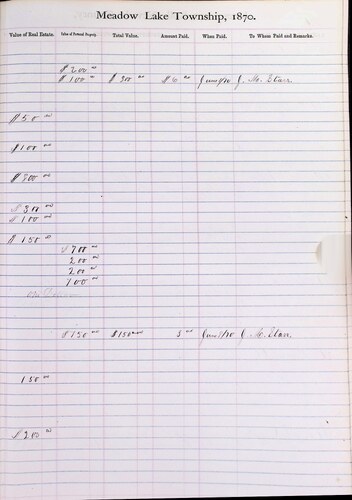 Meadow Lake Township, 1870.
Value of Real Estate. Value of Personal Property. Total Value. Amount Paid. When Paid. To Whom Paid and Remarks.
$200 00
$100 00 $300 00 $6 00 June 1/70 J. M. Starr
$50 00
$100 00
$200 00
$300 00
$100 00
$150 00
$700 00
200 00
200 00
100 00
$150 00 $150 00 3 00 June 1/70 J. M. Starr
150 00
$200 00